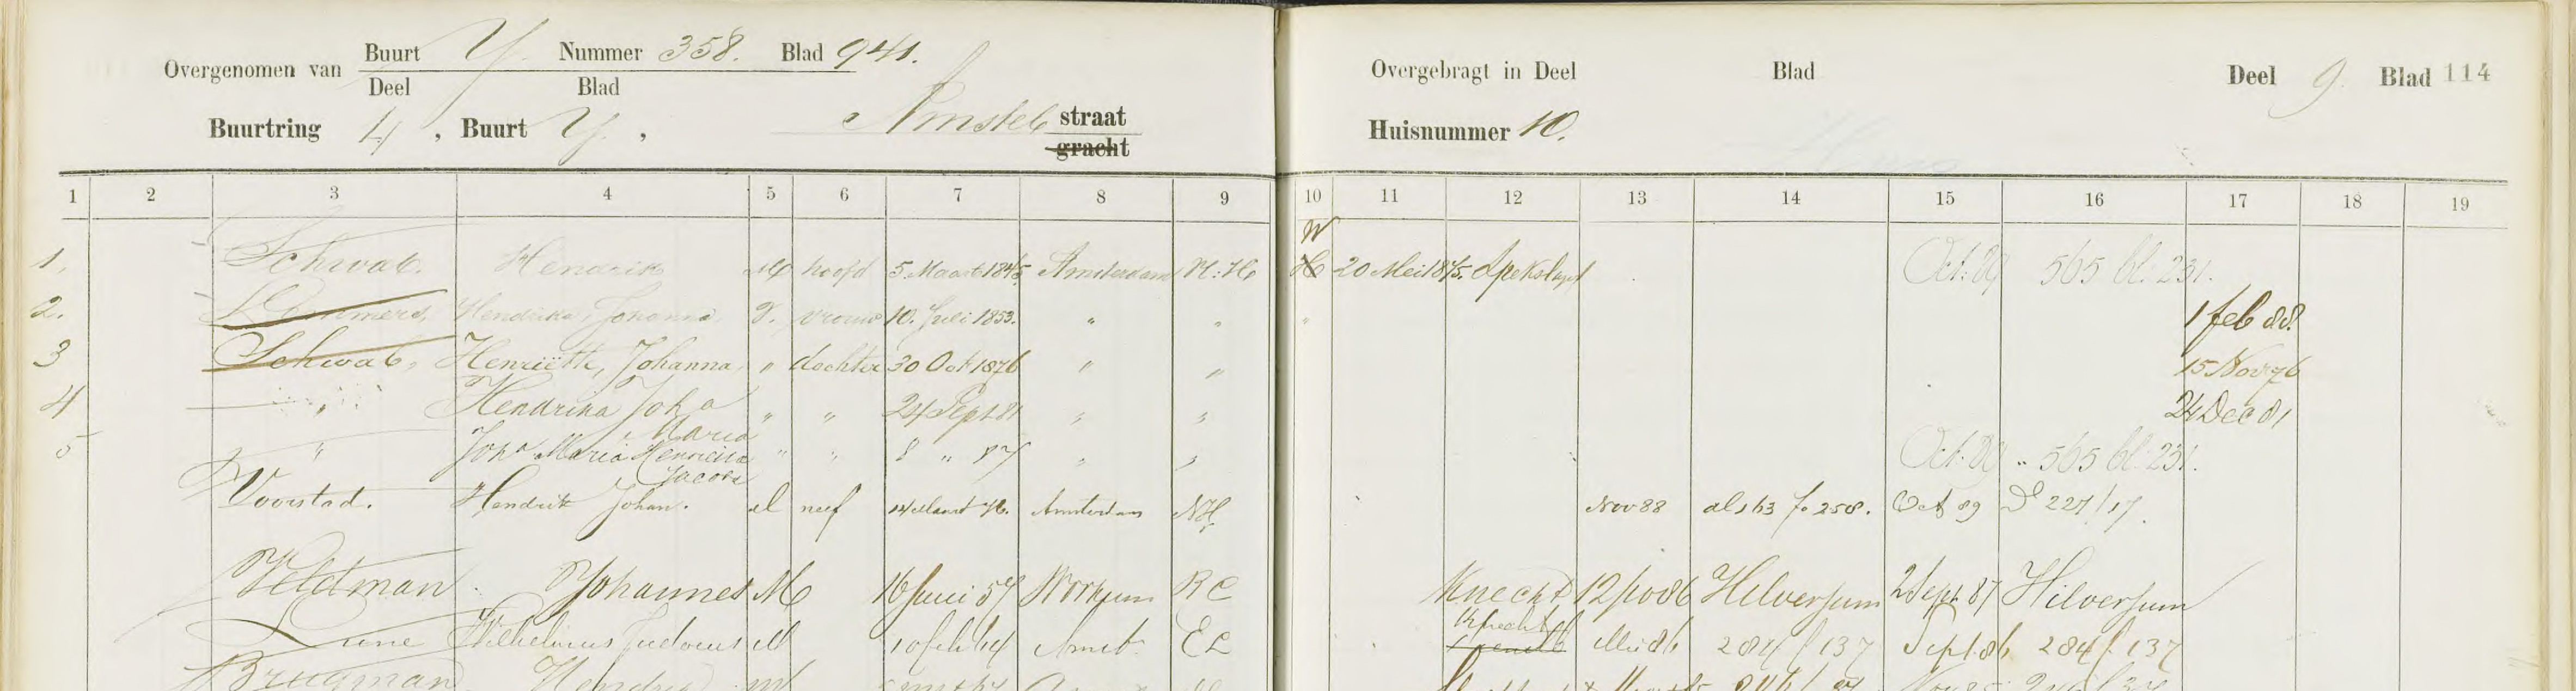 Overgenomen van Buurt Y. Nummer 358. Blad 941.
Deel Blad
Buurtring 4, Buurt Y, Amstel straat
gracht
Overgebragt in Deel Blad Deel 9. Blad 114
Huisnummer 10.
1 2 3 4 5 6 7 8 9 10 11 12 13 14 15 16 17 18 19
W
1. Schwab. Hendrik M hoofd 5 Maart 1845 Amsterdam N:H H 20 Mei 1875. Spekslager Oct: 89 565 bl. 231.
2. Hendrika, Johanna, V. vrouw 10. Juli 1853. " " " 1 feb 88.
3 Schwab, Henriëtte, Johanna, " dochter 30 Oct 1876 " " 15 Nov 76
4 " Hendrina Joha " " 24 Sept 81 " " 24 Dec 81
Maria
5 " Joha Maria Henricina " " 8 " 87 " " Oct. 89 " 565 bl. 231.
Jacoba
Voorstad. Hendrik Johan. M neef Maart Amsterdam NH. Nov 88 als 63 fo 258. Oct 89 D 227/17.
Veldman Johannes M 16 Juni 57 Workum RC Knecht 12 86 Hilversum 2 Sept. 87 Hilversum
Knecht
Wilhelmus Judocus M 10 feb 64 Amst. EL Mei 86 284 f 137 Sept. 86 284 f 137
Brugman Hendrik M